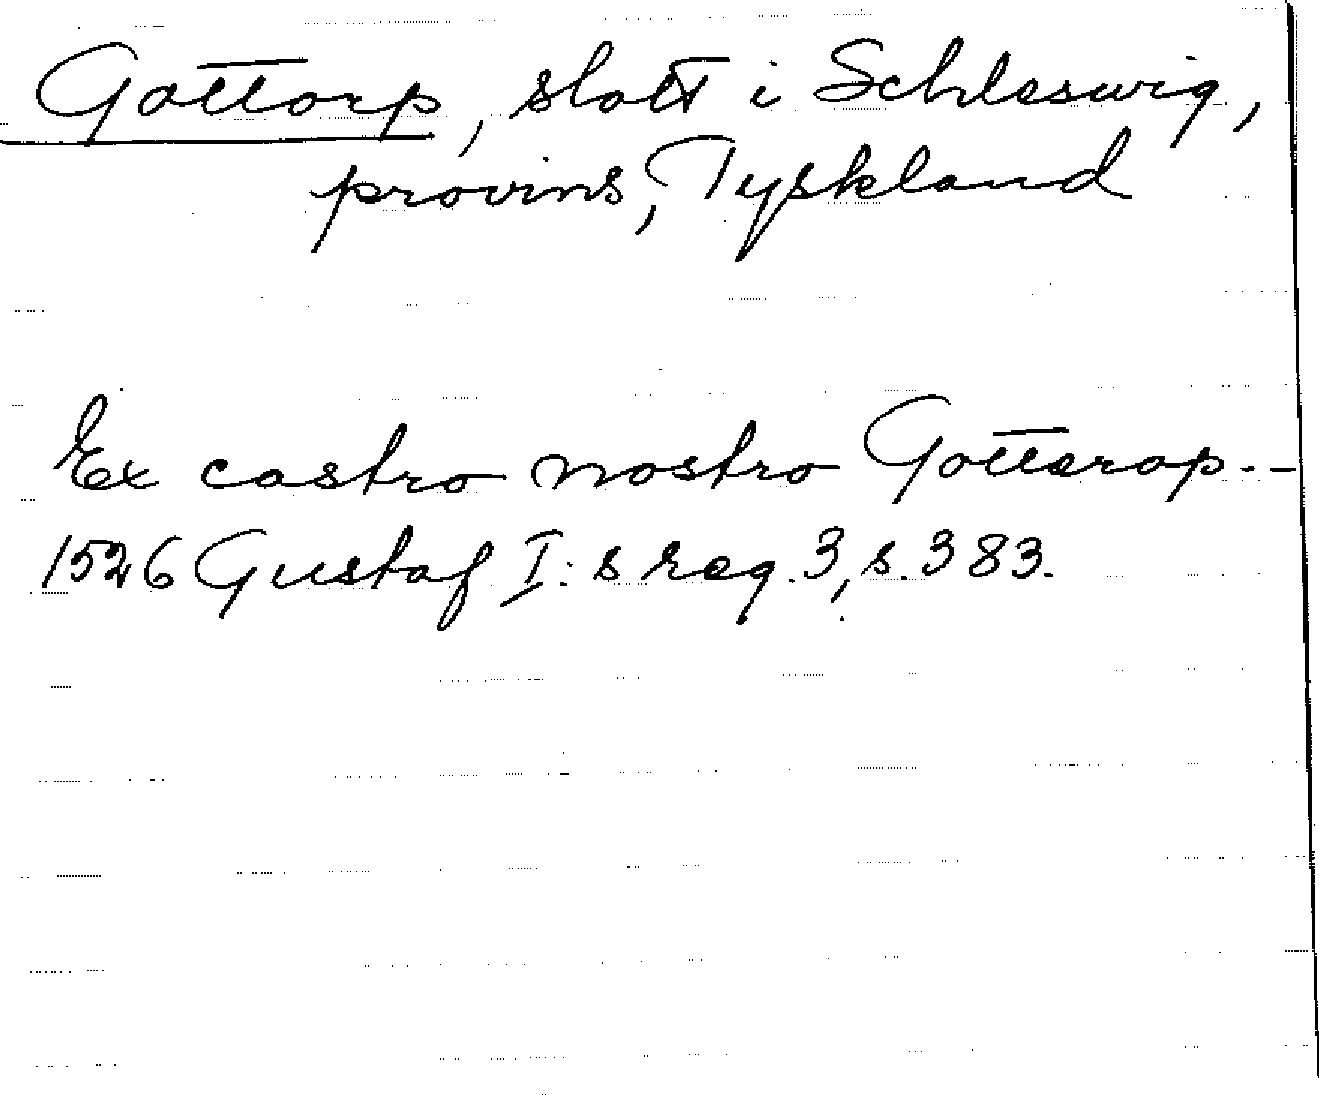 Gottorp, slott i Schleswig,
provins, Tyskland
Ex castro nostro Gotterop --
1526 Gustaf I:s reg. 3, s. 383.